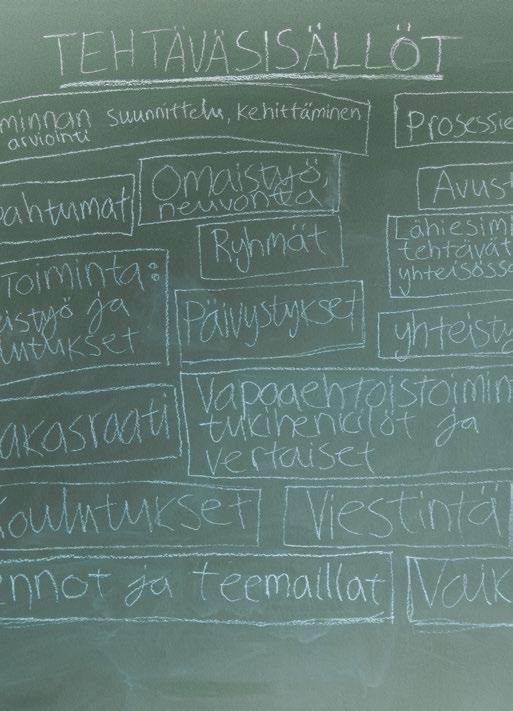 TEHTÄVÄSISÄLLÖT
minnan suunnittelu, kehittäminen
arviointi
Prosessie
Omaistyö,
neuvonta
Avust
pahtumat
Ryhmät
Lähiesimi
tehtävät
yhteisössä
Toiminta:
eistyö ja
lutukset
Päivystykset
yhteisty
akasraati
Vapaaehtoistoimin
tukihenkilöt ja
vertaiset
Koulutukset
Viestintä
ennot ja teemaillat
Vaik